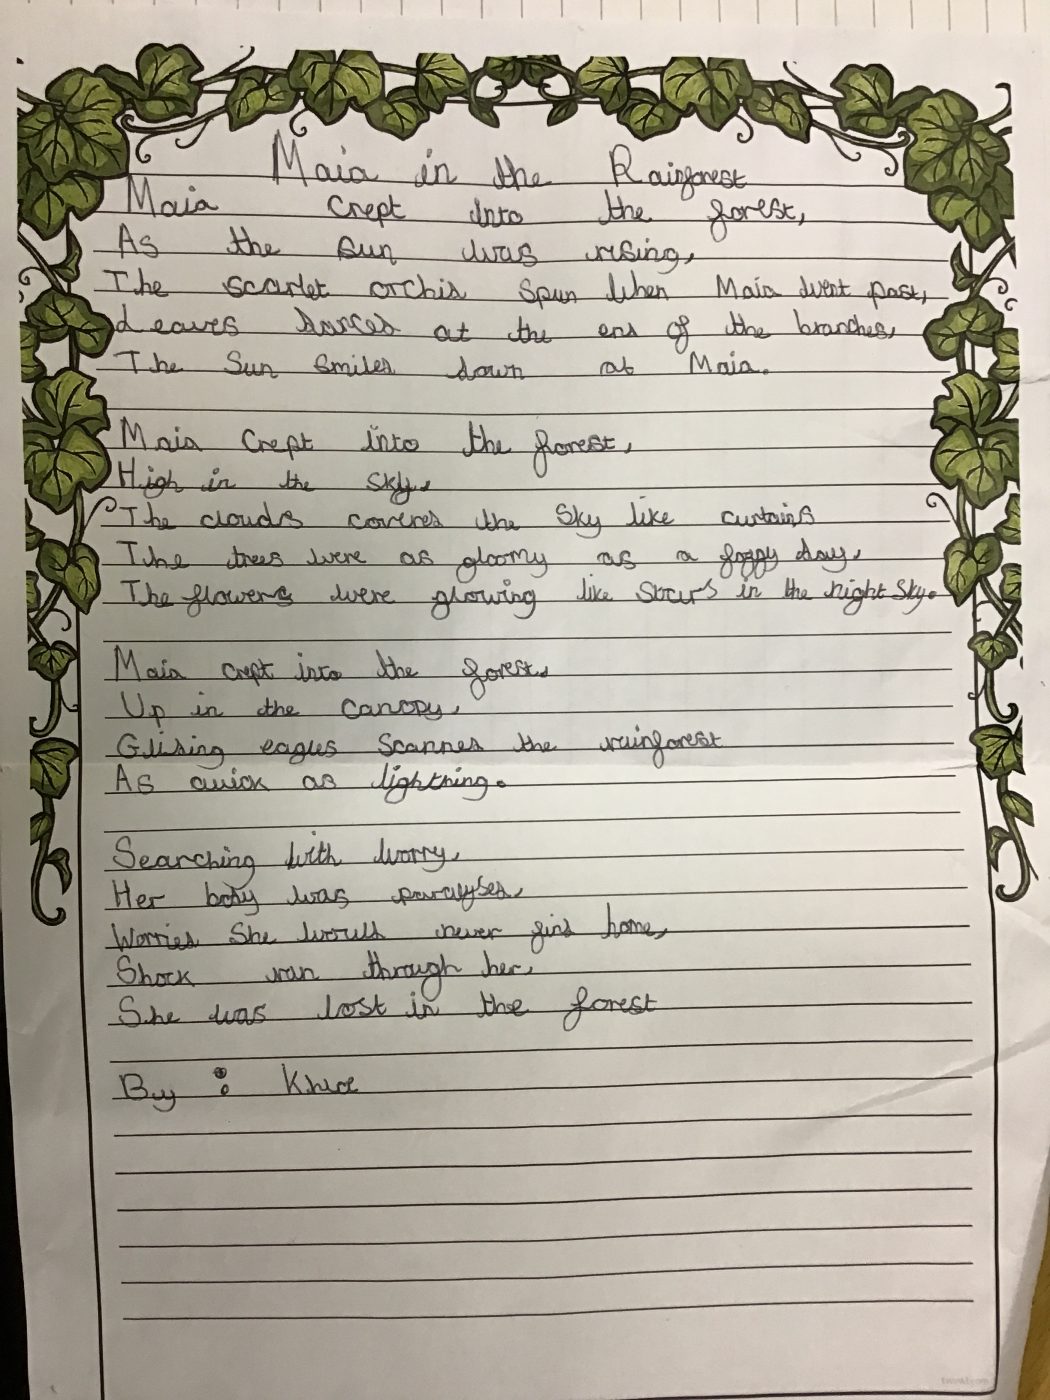 Maia in the Rainforest
Maia crept into the forest,
As the sun was rising,
The scarlet orchid spun when Maia went past,
Leaves danced at the end of the branches,
The Sun smiles down at Maia.
Maia crept into the forest,
High in the sky,
The clouds covered the sky like curtains
The trees were as gloomy as a foggy day,
The flowers were glowing like stars in the night sky.
Maia crept into the forest,
Up in the canopy,
Gliding eagles scanned the rainforest
As quick as lightning.
Searching with worry,
Her body was paralysed,
Worried She would never find home,
Shock ran through her,
She was lost in the forest
By :
twinkl.com